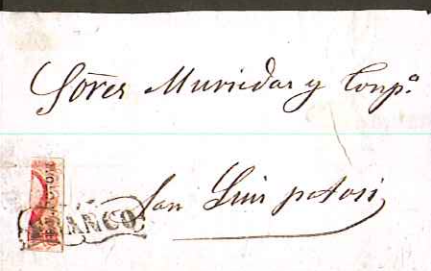 Sores Muriedas y Compª
San Luis potosi
FRANCO